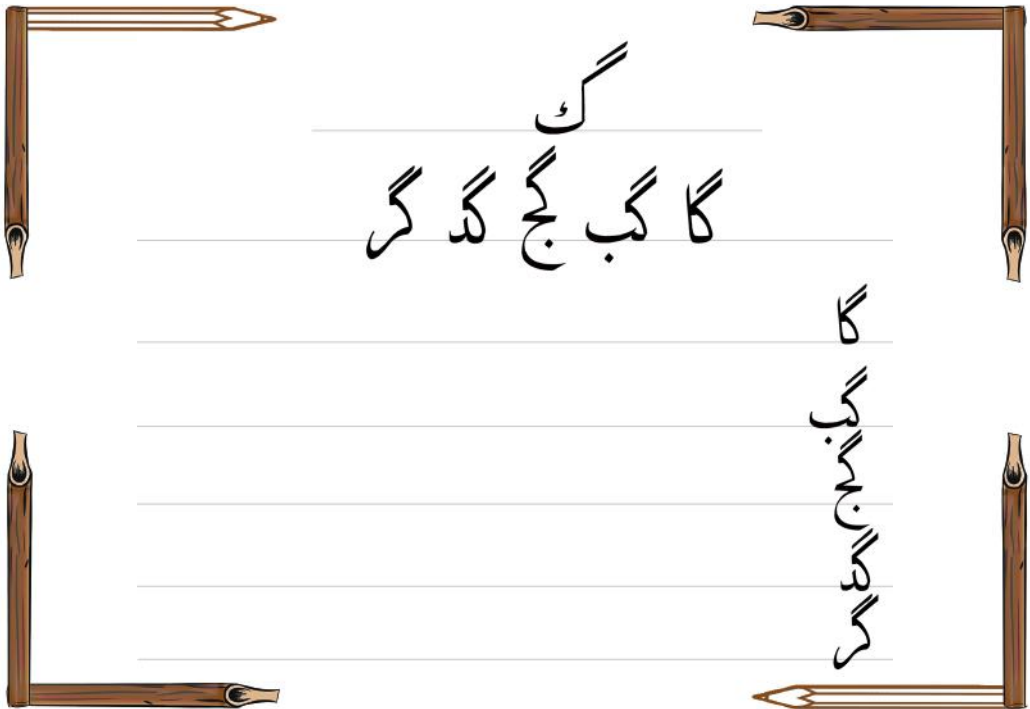 گ
گا گب گج گد گر
گا
گب
گج
گد
گر